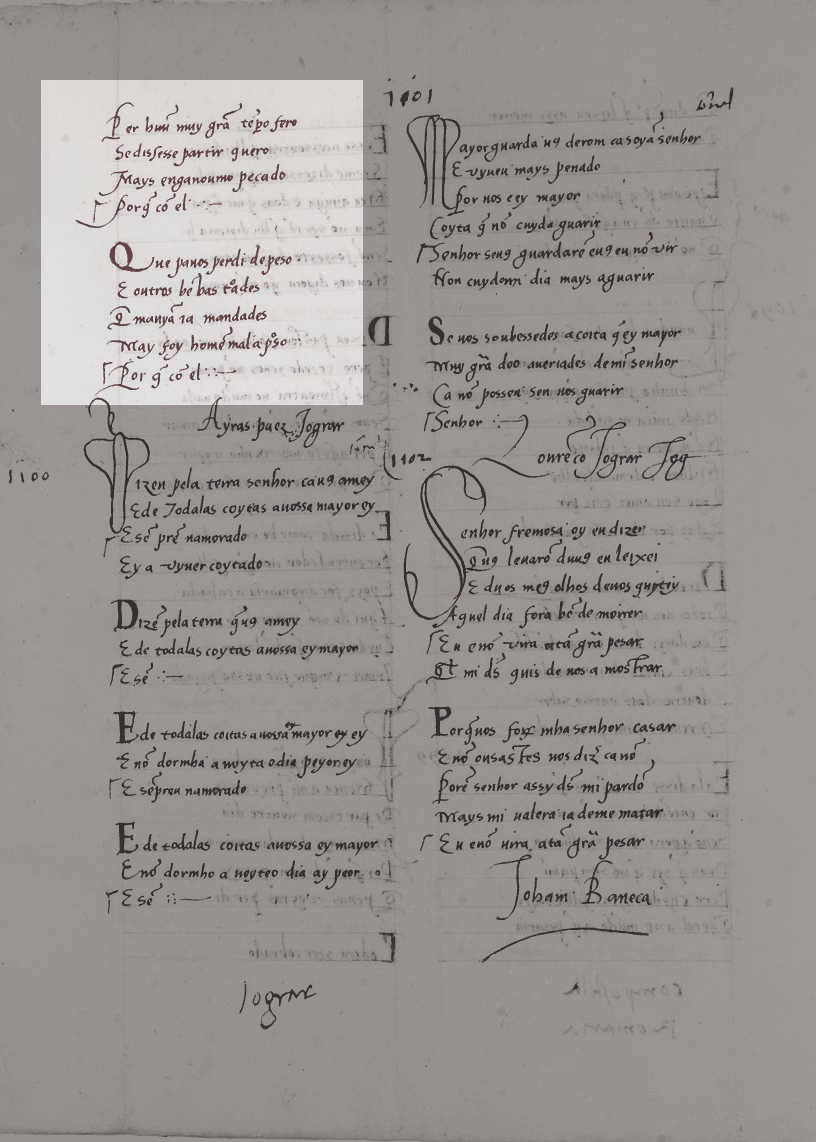 Per huũ muy grã tẽpo fero
Sedissesse partir quero
Mays enganoumo pecado
Porq̃ cõ el
Que panos perdi depeso
E outros bẽ bastẽades
manyã ia mandades
May foy homẽ mal apso
Por q̃ cõ el
Ayras paez Jograr
1100
izen pela terra senhor ca uꝯ amey
E de Todalas coytas a uossa mayor ey
E sẽ prẽ namorado
Ey a vyuer coytado
Dizẽ pela terra q̃uꝯ amey
E de todalas coytas a uossa ey mayor
E sẽ
E de todalas coitas a uossa mayor ey ey
E nõ dormho a noyta o dia peyor ey
E sẽpreu namorado
E de todalas coitas auossa ey mayor
E nõ dormho a noyteo dia ay peor
E sẽ
Jograr
1101
Mayor guarda uꝯ derom ca soyã senhor
E vyueu mays penado
Por nos e ey mayor
Coyta q̃ nõ cuyda guarir
Senhor seuꝯ guardarẽ euꝯ eu nõ vir
Non cuydem dia mays aguarir
Se uos soubessedes a coita q̃ ey mayor
Muy grã doo aueriades demĩ senhor
Ca nõ possen sen uos guarir
Senhor
1102
Lourẽco Jograr Jog
Senhor fremosa oy eu dizer
uꝯ leuarõ duuꝯ eu leixei
E duos meꝯ olhos deuos
Aquel dia fora bẽ de morrer
Eu enõ vira atã grã pesar
mi dŝ quis de uos a mostrar
Porq̃uos forõ mha senhor casar
E nõ ousastes uos diz̃ ca nõ
Porẽ senhor assy dŝ mi pardõ
Mays mi ualera ia deme matar
Eu enõ uira atã grã pesar
Joham Baneca